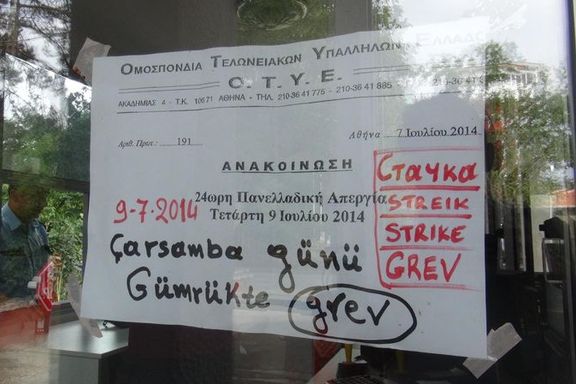 Ομοσπονδία Τελωνειακών Υπαλλήλων Ελλάδος
Ο.Τ.Υ.Ε.
ΑΚΑΔΗΜΙΑΣ 4 - Τ.Κ. 10671 ΑΘΗΝΑ - ΤΗΛ. 210-36 41 775 - 210-36 41 885
Αριθ. Πρωτ.: 191
Αθήνα 7 Ιουλίου 2014
ΑΝΑΚΟΙΝΩΣΗ
24ωρη Πανελλαδική Απεργία
Τετάρτη 9 Ιουλίου 2014
9-7-2014
Стачка
STREIK
STRIKE
GREV
Çarsamba günü
Gümrükte grev